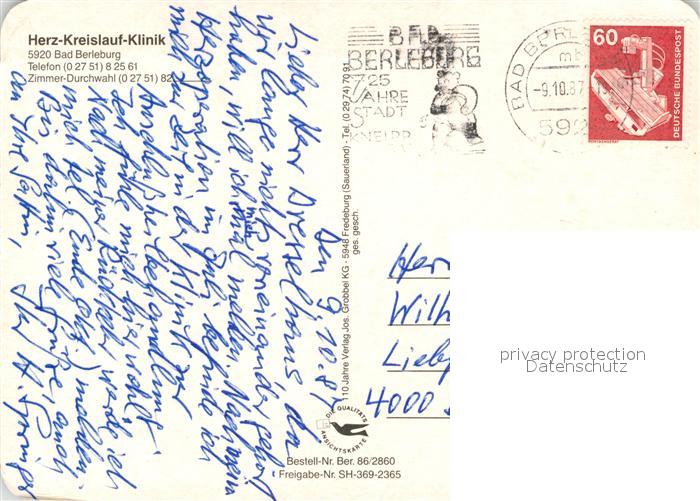 Herz-Kreislauf-Klinik
5920 Bad Berleburg
Telefon (0 27 51) 8 25 61
Zimmer-Durchwahl (0 27 51) 82
BAD
BERLEBURG
725
JAHRE
STADT
KNEIPP
BAD BERLEB
-9.10.87
592
60
DEUTSCHE BUNDESPOST
RÖNTGENGERÄT
Den 9.10.87
Lieber Herr Dresselhaus, da
wir lange nichts voneinander gehört
haben, will ich mich mal melden. Nach meiner
Herzoperation im
in der Klinik zur
Anschlußheilbehandlung.
Zur fühle mich hier wohl.
Nach meiner Rückkehr werde ich
mich tel. (Ende Okt.) melden.
Bis dahin viele Grüße, auch
an Ihre Gattin,
Ihr H.
110 Jahre Verlag Jos. Grobbel KG - 5948 Fredeburg (Sauerland) - Tel. (0 29 74) 70 91
ges. gesch.
Herr
Wilh
Lieb
4000
privacy protection
Datenschutz
DIE QUALITÄTS
ANSICHTSKARTE
Bestell-Nr. Ber. 86/2860
Freigabe-Nr. SH-369-2365